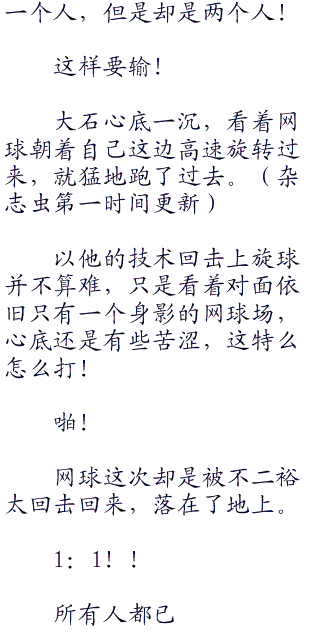 一个人，但是却是两个人！
这样要输！
大石心底一沉，看着网
球朝着自己这边高速旋转过
来，就猛地跑了过去。（杂
志虫第一时间更新）
以他的技术回击上旋球
并不算难，只是看着对面依
旧只有一个身影的网球场，
心底还是有些苦涩，这特么
怎么打！
啪！
网球这次却是被不二裕
太回击回来，落在了地上。
1：1！！
所有人都已